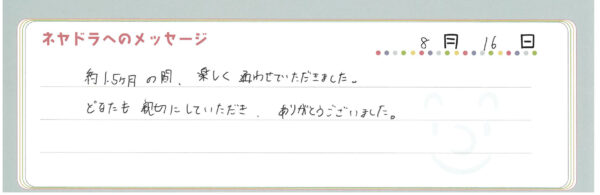 ネヤドラへのメッセージ
8月16日
約1.5ヶ月の間、楽しく通わせていただきました。
どなたも親切にしていただき、ありがとうございました。